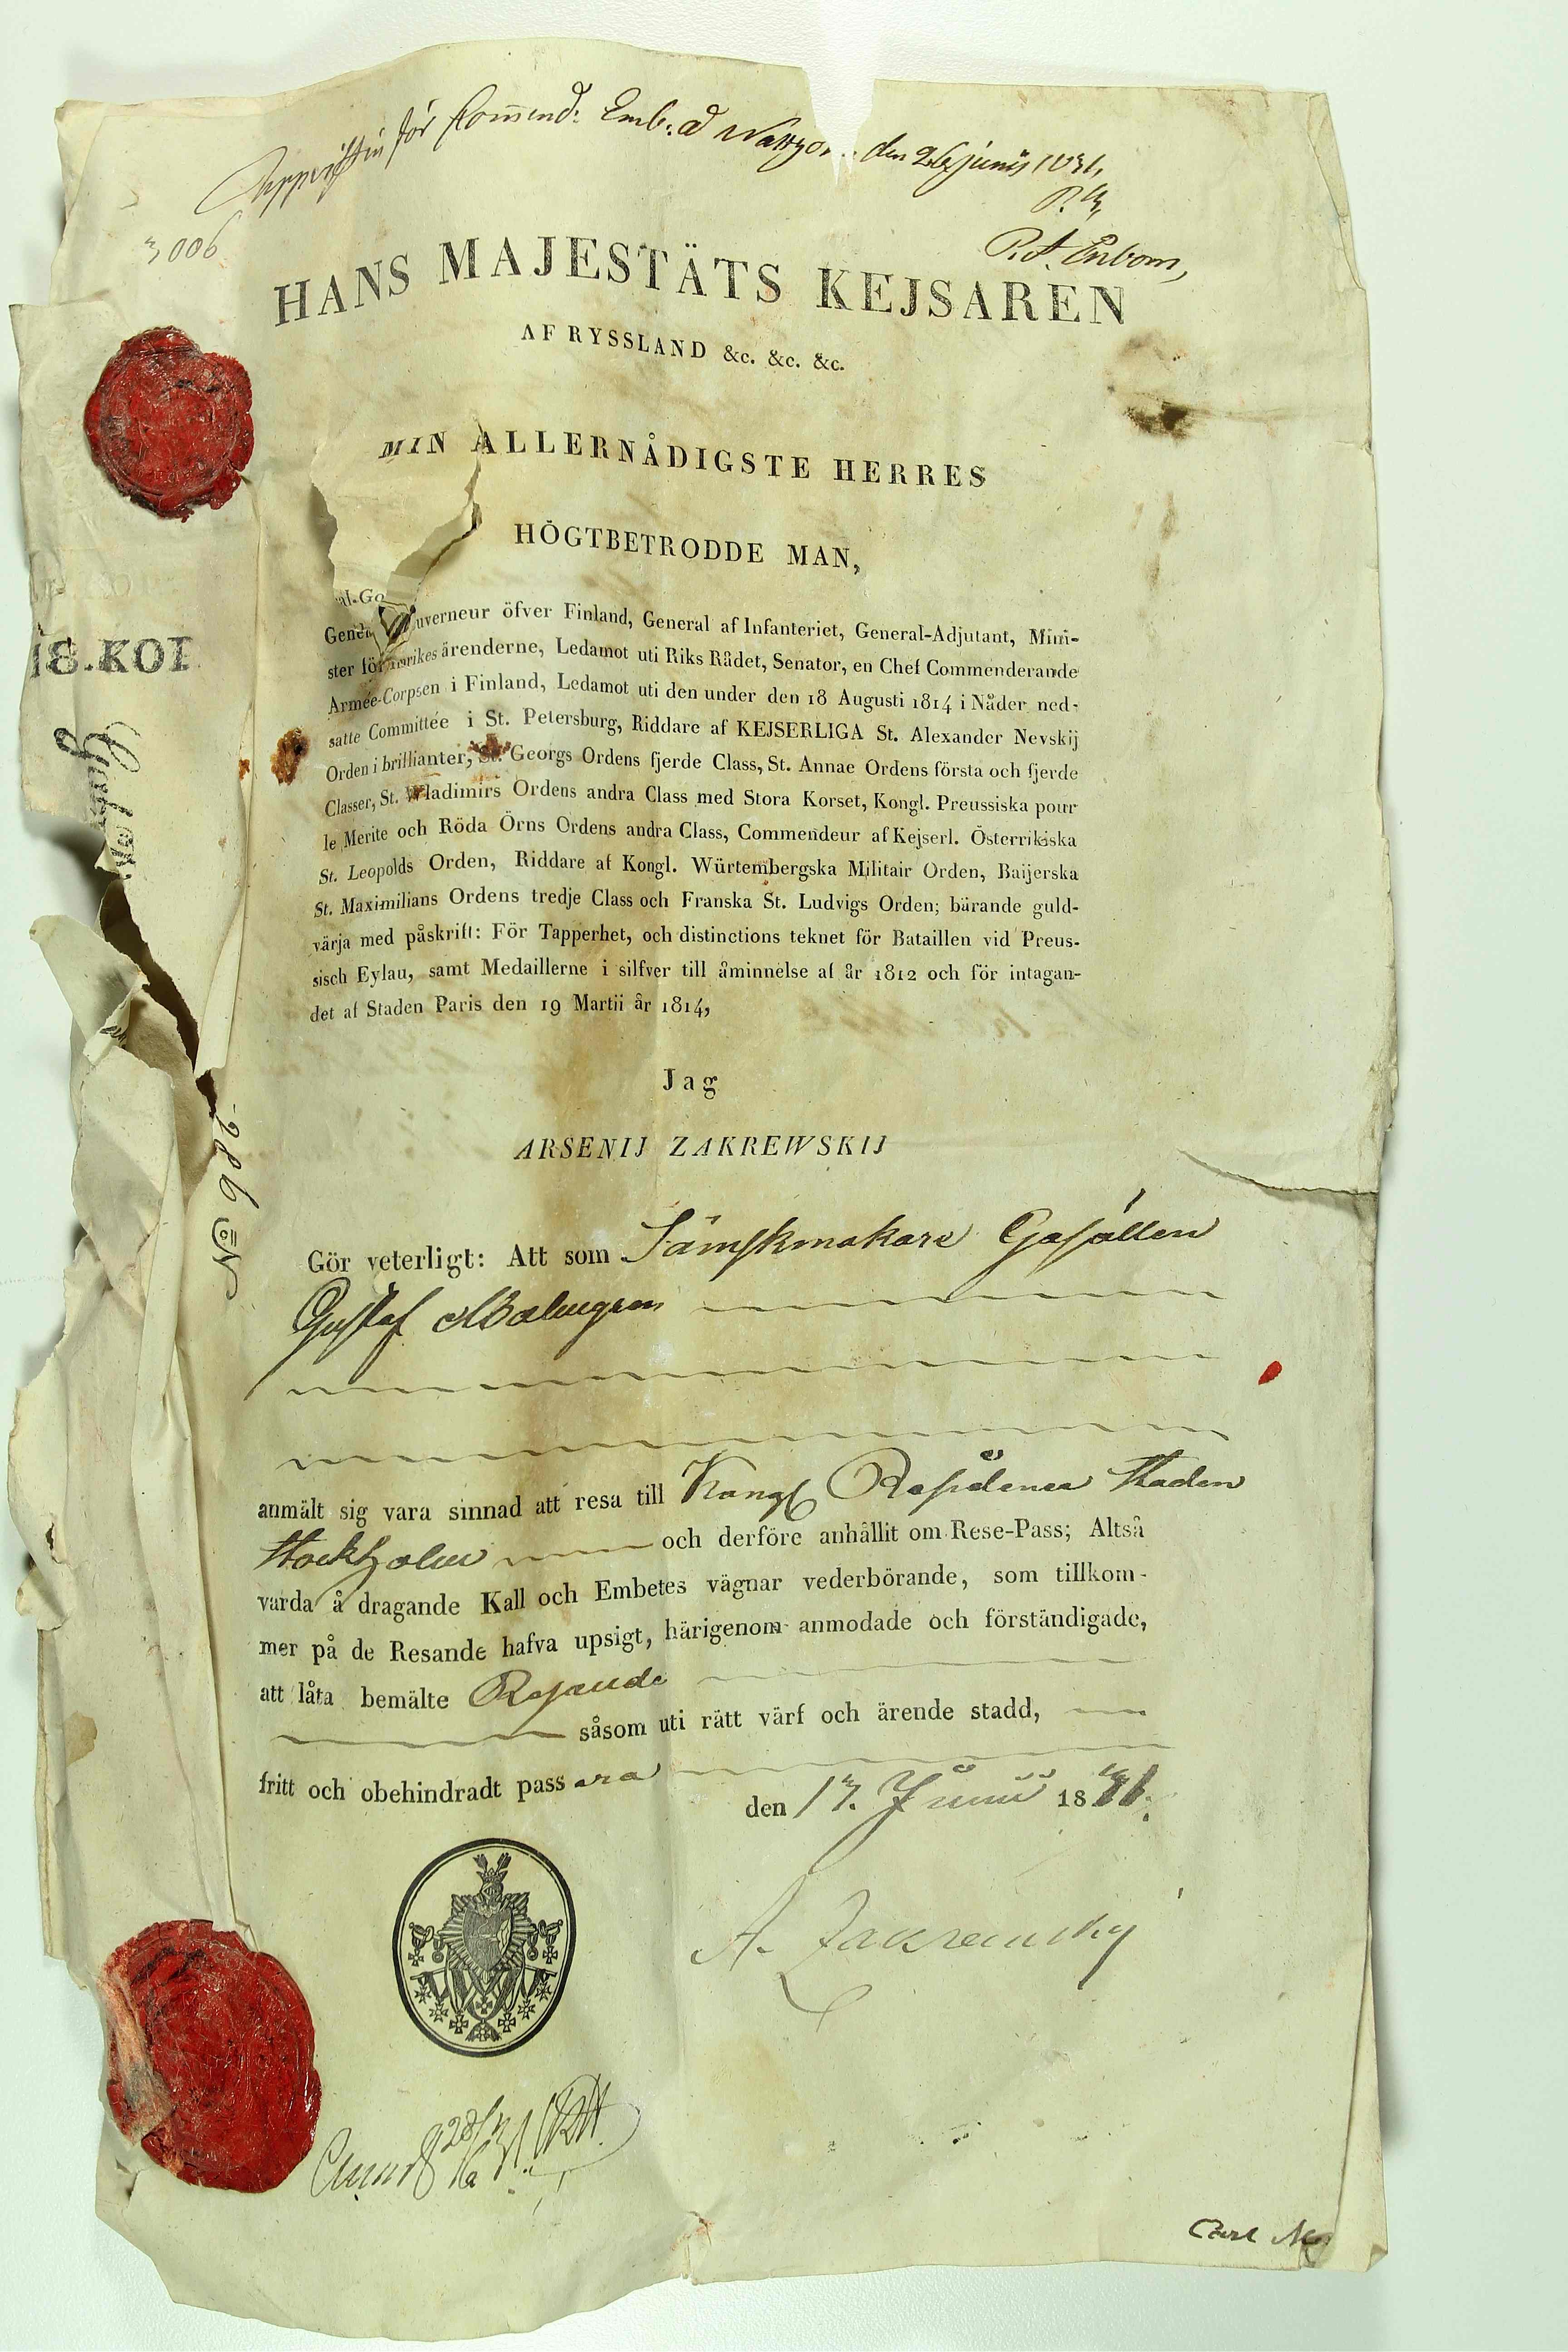 för Commend: Emb:d den 26 junii 1831,
P. A. Enbom,
3006
HANS MAJESTÄTS KEJSAREN
AF RYSSLAND &c. &c. &c.
MIN ALLERNÅDIGSTE HERRES
HÖGTBETRODDE MAN,
uverneur öfver Finland, General af Infanteriet, General-Adjutant, Mini-
ster för Inrikes ärenderne, Ledamot uti Riks Rådet, Senator, en Chef Commenderande
Armée-Corpsen i Finland, Ledamot uti den under den 18 Augusti 1814 i Nåder ned-
satte Committée i St. Petersburg, Riddare af KEJSERLIGA St. Alexander Nevskij
Orden i brillianter, St. Georgs Ordens fjerde Class, St. Annae Ordens första och fjerde
Classer, St. Wladimirs Ordens andra Class med Stora Korset, Kongl. Preussiska pour
le Merite och Röda Örns Ordens andra Class, Commendeur af Kejserl. Österrikiska
St. Leopolds Orden, Riddare af Kongl. Würtembergska Militair Orden, Baijerska
St. Maximilians Ordens tredje Class och Franska St. Ludvigs Orden; bärande guld-
värja med påskrift: För Tapperhet, och distinctions teknet för Bataillen vid Preus-
sisch Eylau, samt Medaillerne i silfver till åminnelse af år 1812 och för intagan-
det af Staden Paris den 19 Martii år 1814,
Jag
ARSENIJ ZAKREWSKIJ
No 986
Gör veterligt: Att som Sämskmakare Gesällen
Gustaf Malmgren
anmält sig vara sinnad att resa till Kongl Residence Staden
Stockholm och derföre anhållit om Rese-Pass; Altså
varda å dragande Kall och Embetes vägnar vederbörande, som tillkom-
mer på de Resande hafva upsigt, härigenom anmodade och förständigade,
att låta bemälte Resande
såsom uti rätt värf och ärende stadd,
fritt och obehindradt passera
den 17. Junii 1831.
A. Zakrewsky
Carl